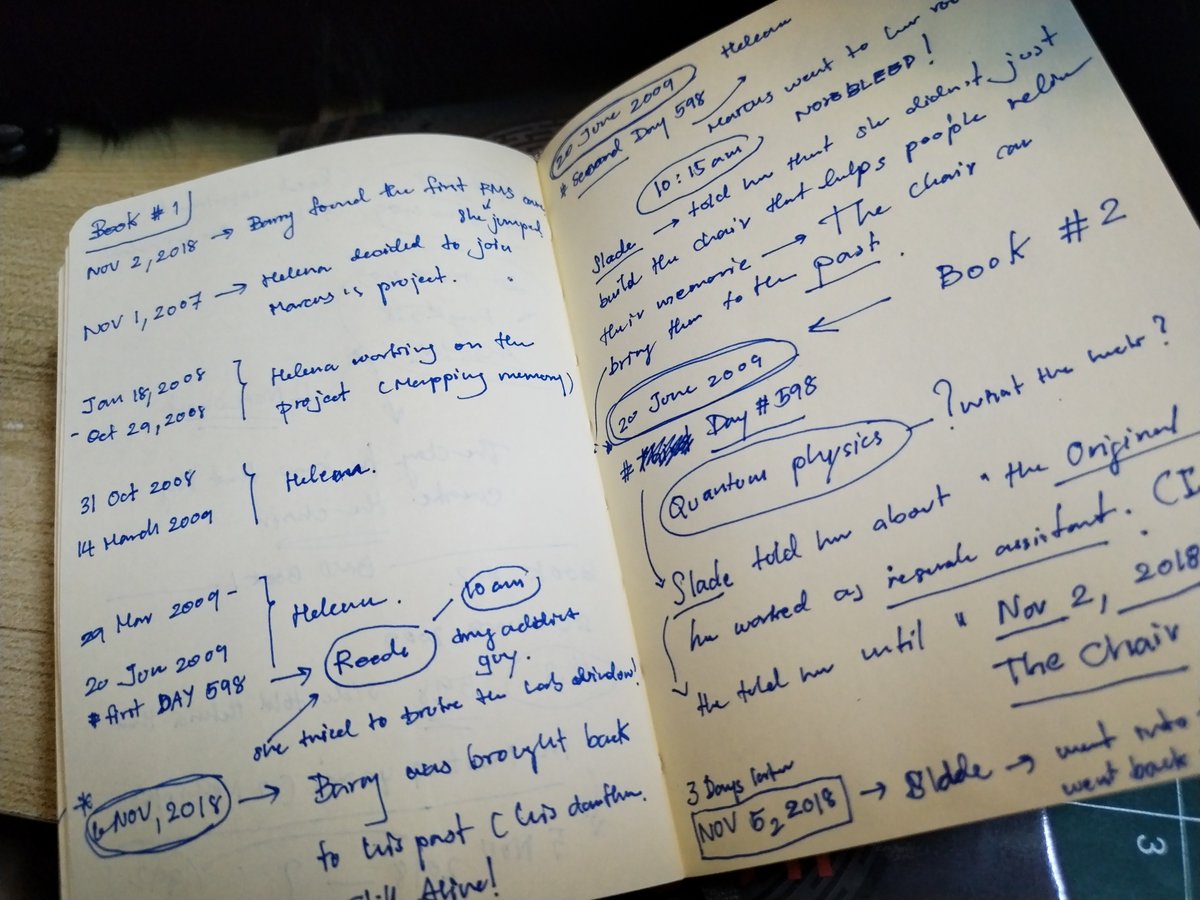 Book # 1
NOV 2, 2018 → Barry found the first FMS
she jumped
NOV 1, 2007 → Helena decided to join
Marcus's project.
Jan 18, 2008
- Oct 29, 2008
Helena working on the
project (Mapping memory)
31 Oct 2008
14 March 2009
Helena.
29 Mar 2009 -
20 Jun 2009
Helena.
# first DAY 598 → Reede
10 am
drug addict
guy.
she tried to the lab window!
* 6 NOV, 2018 → Barry was brought back
to his past (his
Still Alive!
20 June 2009
Helena
* second Day 598
Marcus went to her
NOSEBLEED!
10:15 am
Slade → told her that she didn't just
build the chair that helps people
their memorie → The chair can
bring them to the past.
Book # 2
20 June 2009
# Day # 598
Quantum physics — ? what the heck?
Slade told her about "the Original
he worked as assistant.
He told her until " Nov 2, 2018
The Chair
3 Days later
NOV 5, 2018 → Slade → went into
went back
3